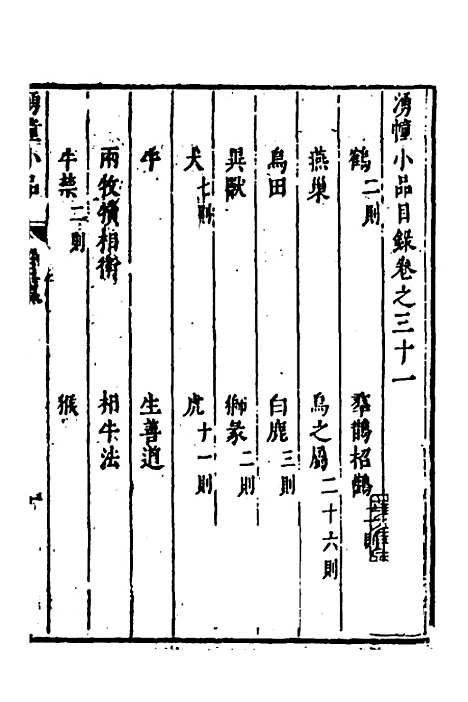 湧幢小品目錄卷之三十一
鶴二則 羣鵲招鶴二則
燕巢 鳥之屬二十六則
鳥田 白鹿三則
異獸 獅象二則
犬七則 虎十一則
牛 生善道
兩牧犢相衛 相牛法
牛禁二則 猴
湧幢小品